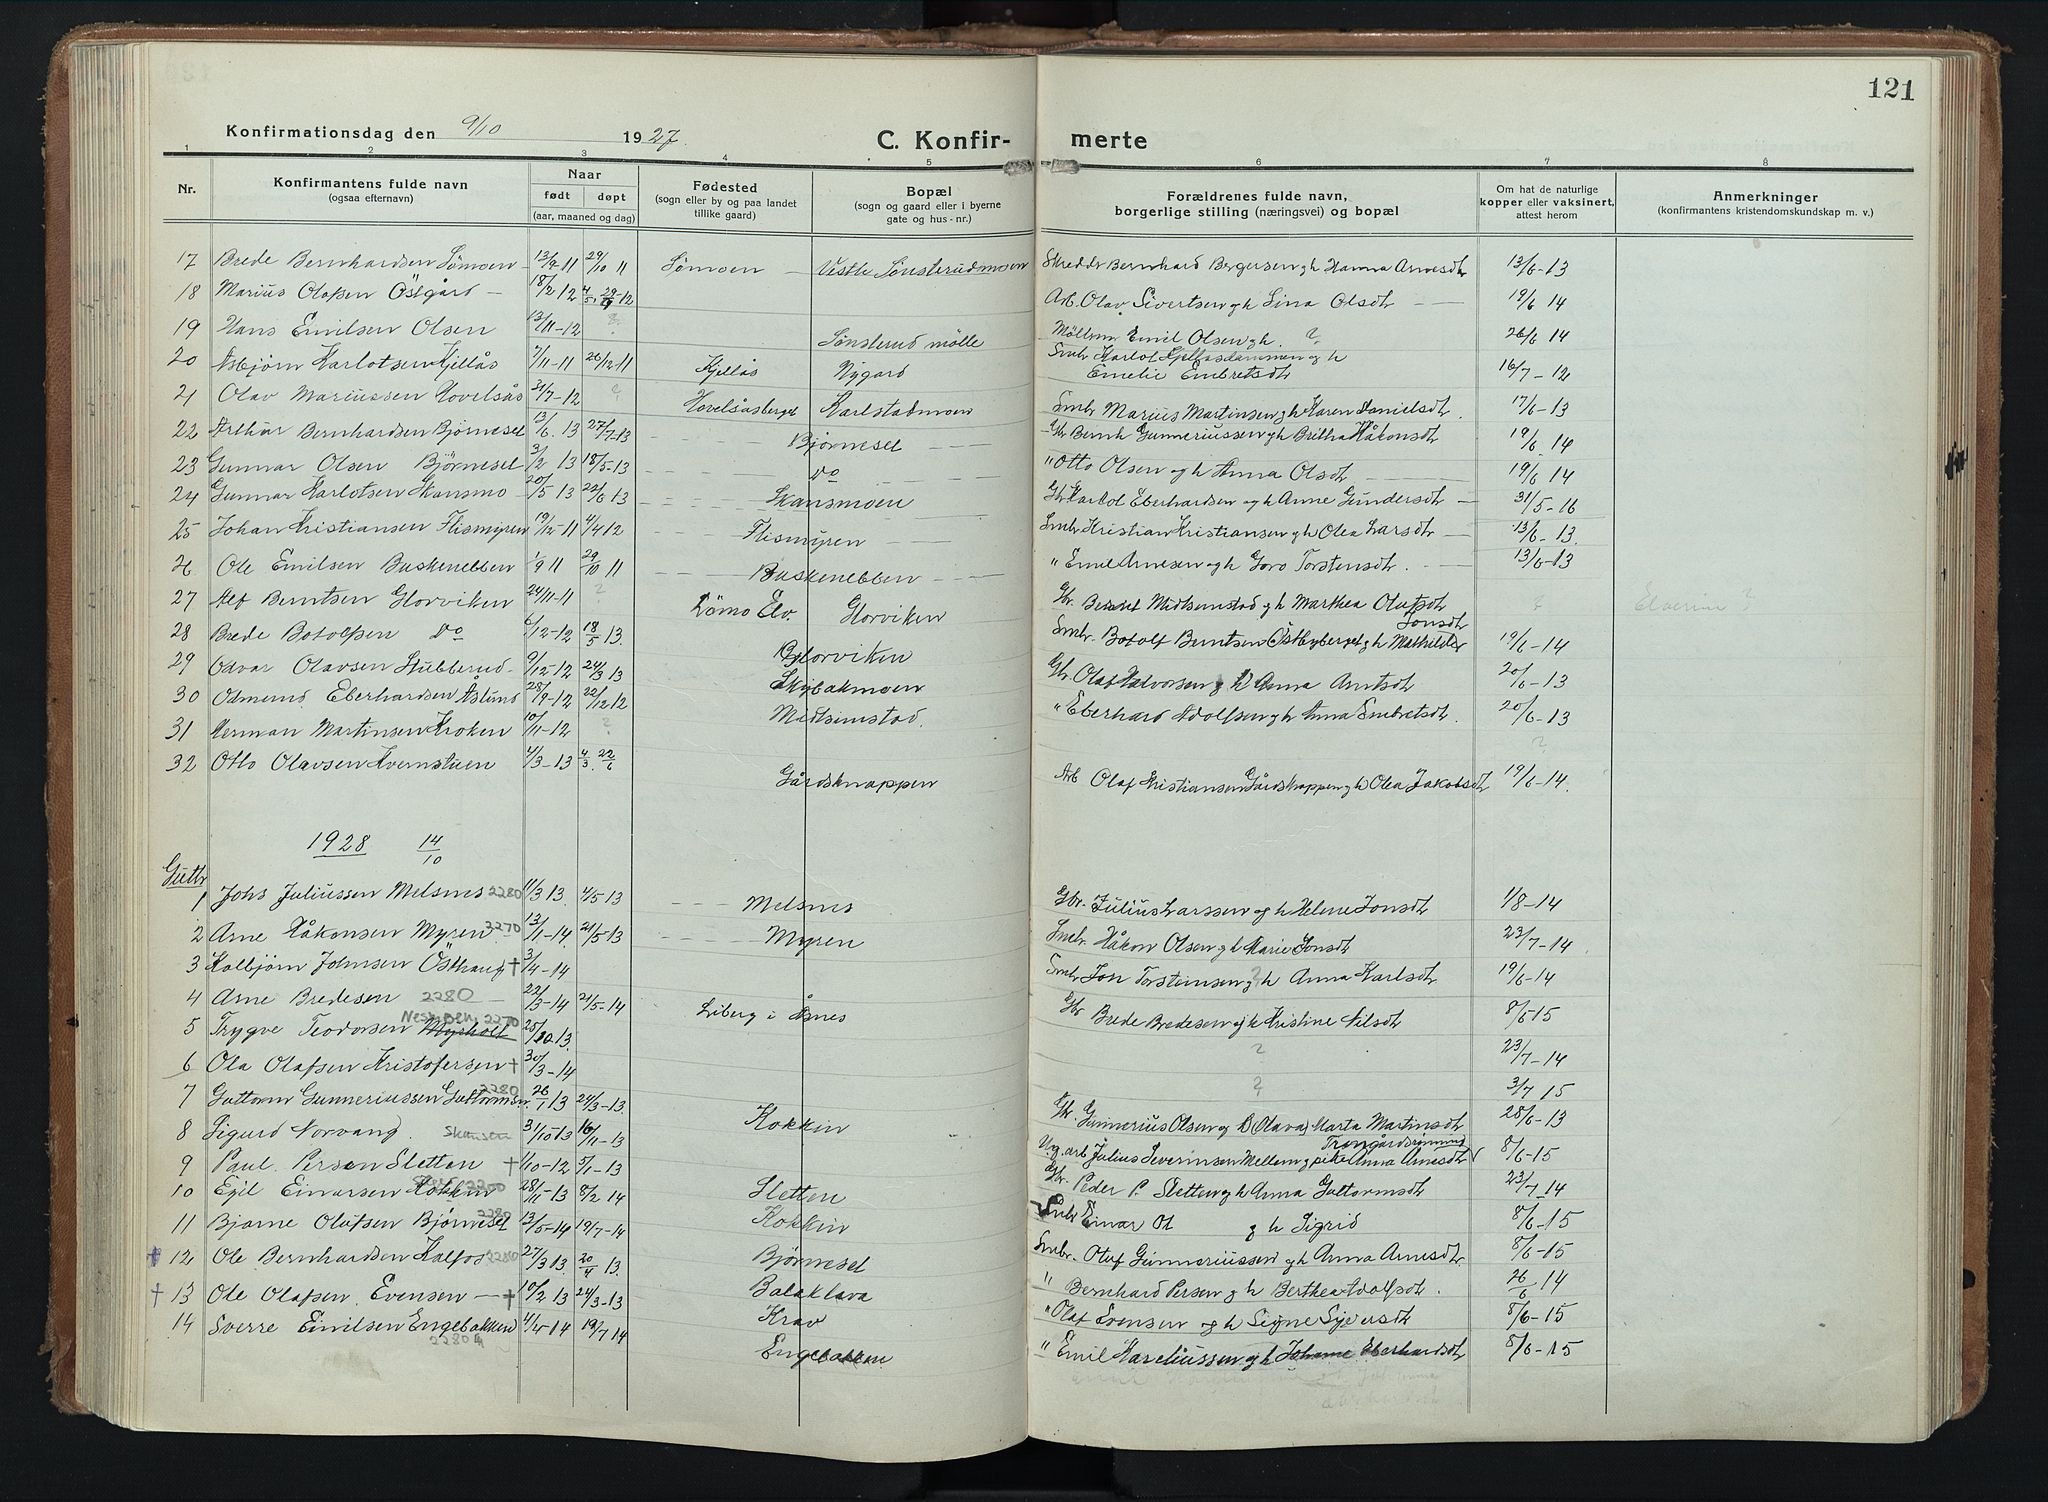 121
Konfirmationsdag den 9/10 1927.
C. Konfirmerte
1 2 3 4 5 6 7 8
Nr. Konfirmantens fulde navn (ogsaa efternavn) Naar født døpt (aar, maaned og dag) Fødested (sogn eller by og paa landet tillike gaard) Bopæl (sogn og gaard eller i byerne gate og hus-nr.) Forældrenes fulde navn, borgerlige stilling (næringsvei) og bopæl Om hat de naturlige kopper eller vaksinert, attest herom Anmerkninger (konfirmantens kristendomskundskap m. v.)
17 Brede Bernhardsen Sømoen 13/9 11 29/10 11 Sømoen Vestli Sønsterudmoen Skredder Bernhard Bergersen gh Hanna Arnesdtr 13/6-13
18 Marius Olafsen Östgård 18/2 12 Arb. Olav Sivertsen gh Lina Olsdtr 19/6 14
19 Hans Emilsen Olsen 13/11-12 ? Sønsterud mølle Emil Olsen gh. ? 26/6 14
20 Asbjørn Karlotsen Kjellås 7/11-11 26/12 11 Kjellås Nygard Smbr Karlot gh Emelie Embretsdtr 16/7-12
21 Olav Mariussen Hovelsås 31/7-12 ? Hovelsåsberget Karlstadmoen Smbr Marius Martinsen gh Karen Danielsdtr. 17/6-13
22 Arthur Bernhardsen Bjørnesel 13/6. 13 27/7-13 Bjørnesel Gbr Bernh Gunneriussen gh Håkonsdtr 19/6 14
23 Gunnar Olsen Bjørnesel 3/2 13 18/5-13 do " Otto Olsen og h Anna Olsdtr 19/6 14
24 Gunnar Karlotsen Skansmo 20/5 13 22/6 13 Skansmoen Gbr Karlot Eberhardsen og h Anne Gundersdtr 31/5-16
25 Johan Kristiansen Flismyren 19/12-11 4/4 12 Flismyren Smbr Kristian Kristiansen gh Olea Larsdtr 13/6-13.
26 Ole Emilsen Buskenebben 1/9 11 29/10 11 Buskenebben " Emil Arnesen og h Goro Torstensdtr. 13/6-13
27 Alf Berntsen Glorviken 24/11-11 ? Lömo Elv. Glorviken Gbr. Midtsimstad gh Marthea Olufsdtr ? Elverum?
28 Brede Botolfsen do 6/12-12 18/5 13. Glorviken Smbr. Botolf Berntsen Östbyberget gh Mathilde Jonsdtr 19/6-14
29 Odvar Olavsen Stubberud 9/12-12 24/3 13 Skybakmoen Gbr. Olaf Halvorsen g h Anna Arntsdtr 20/6-13
30 Odmund Eberhardsen Åslund 28/9-12 22/12 12 Midtsimstad. " Eberhard Adolfsen gh Anna Embretsdtr. 20/6-13
31 Herman Martinsen Kroken 10/11-12 ? ?
32 Otto Olavsen Kvernstuen 4/3-13 4/3. 22/6 Gårdsknappen Arb Olaf Kristiansen gh Olea Jakobsdtr 19/6-14.
1928 14/10
Gutter
1 Johs Juliussen Melsnes 2280 11/3 13. 4/5 13 Melsnes Gbr. Julius Larssen og h Helene Jonsdtr 1/8-14
2 Arne Håkonsen Myren 2270 13/1-14. 21/5-13 Myren Smbr. Håkon Olsen gh Marie Jonsdtr 23/7-14
3 Kolbjørn Johnsen Östhaug † 3/4-14 Smbr Jon Torsteinsen gh Anna Karlsdtr 19/6-14
4 Arne Bredesen 2280 22/3-14 21/5-14 Liberg i Åsnes Gbr Brede Bredesen og h Kristine Nilsdtr 8/6-15
5 Trygve Teodorsen Myrholt 2270 25/10-13. ? 23/7-14
6 Ola Olafsen Kristofersen † 30/3-14 ? 3/7 15
7 Guttorm Gunneriussen Guttormsen. 2280 26/1 13 24/3-13. Kokkin Gbr. Gunnerius Olsen og h (Olava) Marta Martinsdtr 28/6-13
8 Sigurd Norvang. Skansen 31/10-13 16/11-13 Ug. arb Julius Severinsen Mellem g pike Anna Arnesdtr 8/6-15
9 Paul. Persen Sletten † 1/10-12 5/1-13 Sletten Gbr. Peder P. Sletten g h Anna Guttormsdtr 23/7-14
10 Egil Einarsen Kokkin 28/11-13 8/2 14 Kokkin Smbr Einar Ol g h Sigrid 8/6-15
11 Bjarne Olufsen Bjørnesel 2280 13/5-14 19/7-14 Bjørnesel Smbr. Oluf Gunneriussen gh Anna Arnesdtr 8/6-15
† 12 Ole Bernhardsen Kalfos 2280 27/3 13. 20/4 13. Balaklava " Bernhard Persen g h Berthea Adolfsdtr. 26/6 14
† 13 Ole Olafsen Evensen † 10/2 13 24/3-13 Krav " Olaf Evensen og h Signe Syversdtr 8/6-15
14 Sverre Emilsen Engebakken 2280 4/4-14 19/7 14 Engebakken " Emil Kareliussen g h Johanne Eberhardsdtr 8/6-15